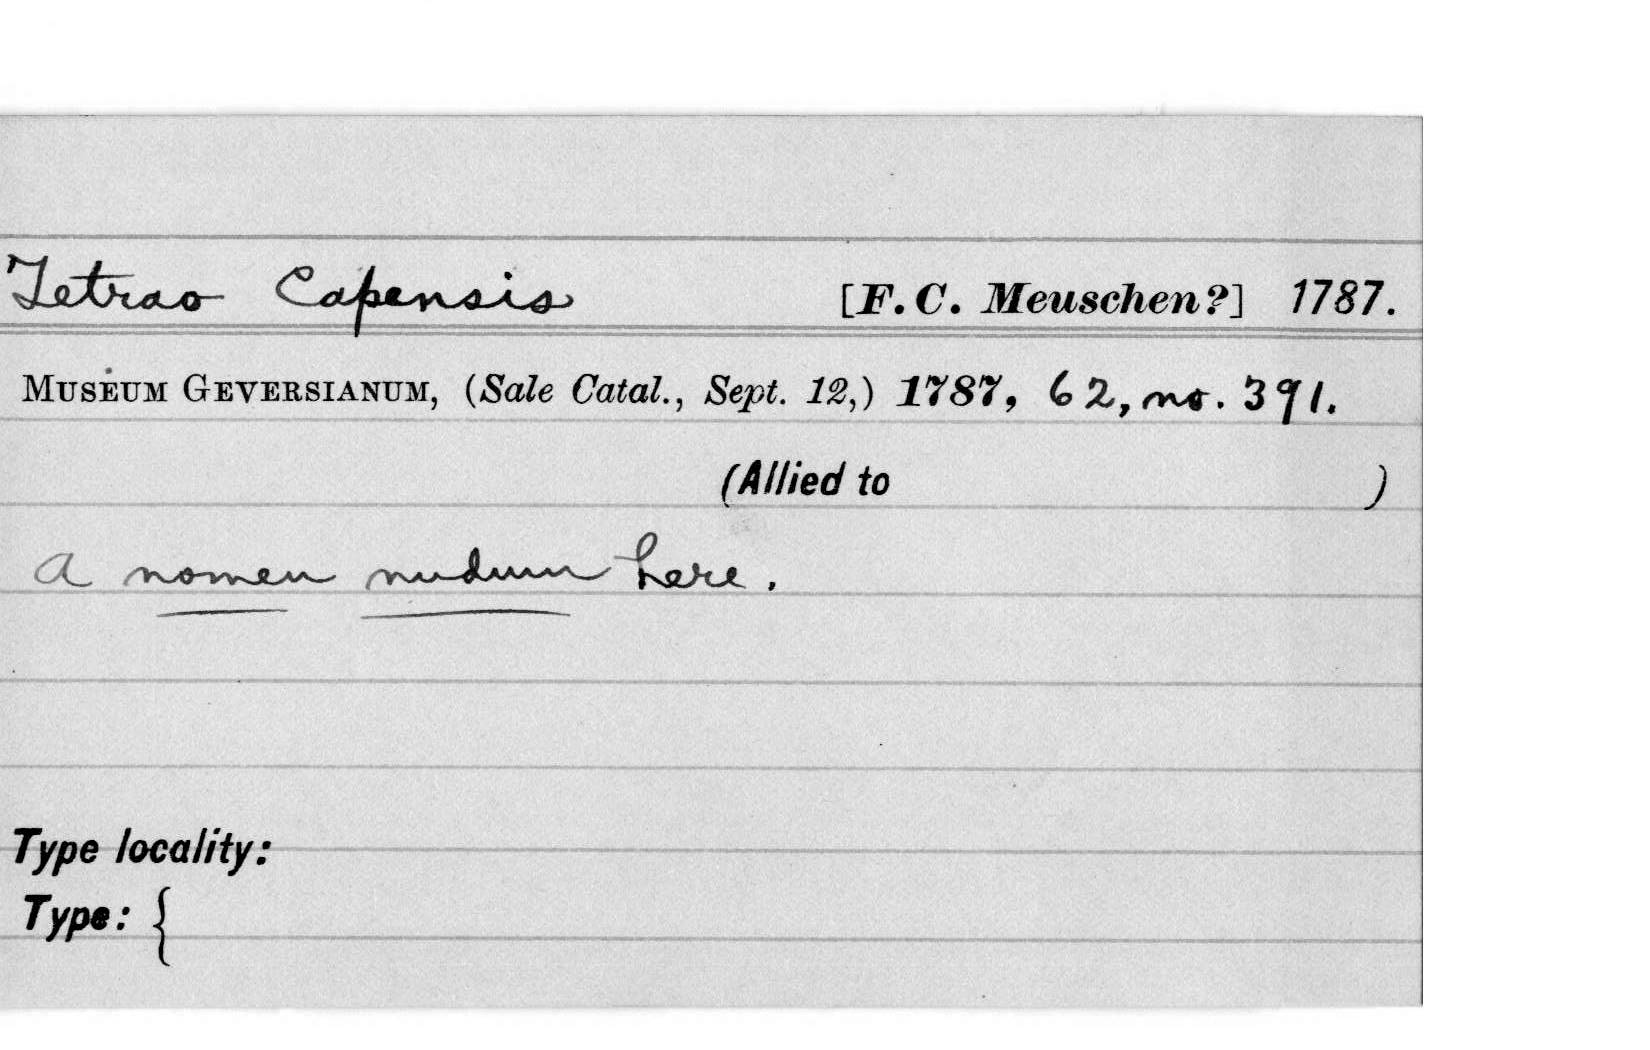 Tetrao Capensis [F. C. Meuschen?] 1787.
MUSEUM GEVERSIANUM, (Sale Catal., Sept. 12,) 1787, 62, no. 391.
(Allied to )
A nomen nudum here.
Type locality:
Type: {